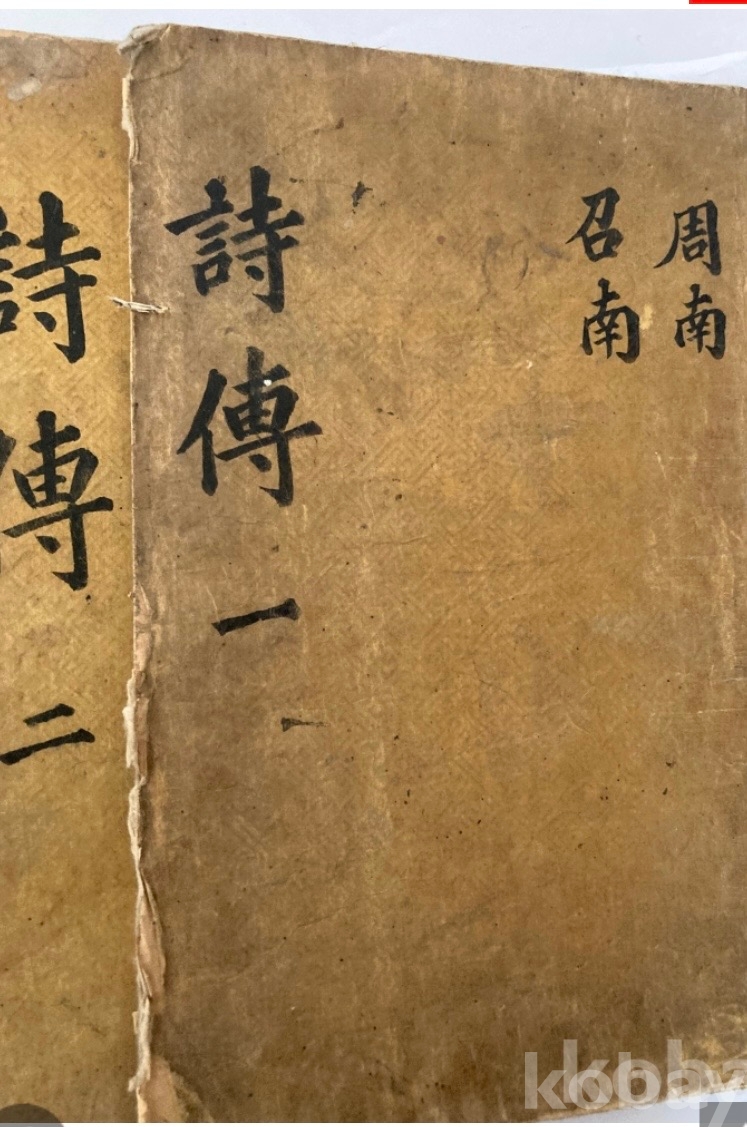 周南
召南
詩傳 一
詩傳 二
kobay